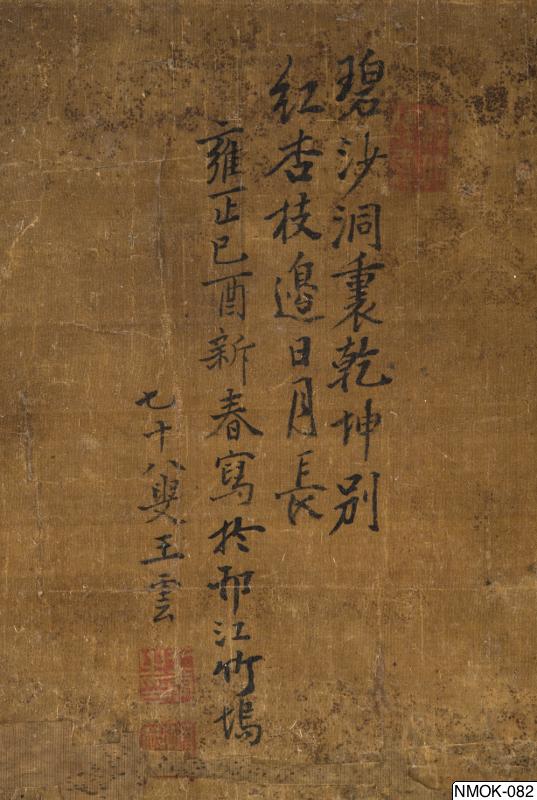 碧沙洞裏乾坤別
紅杏枝邊日月長
雍正己酉新春寫於邗江竹塢
七十八叟王雲
NMOK-082